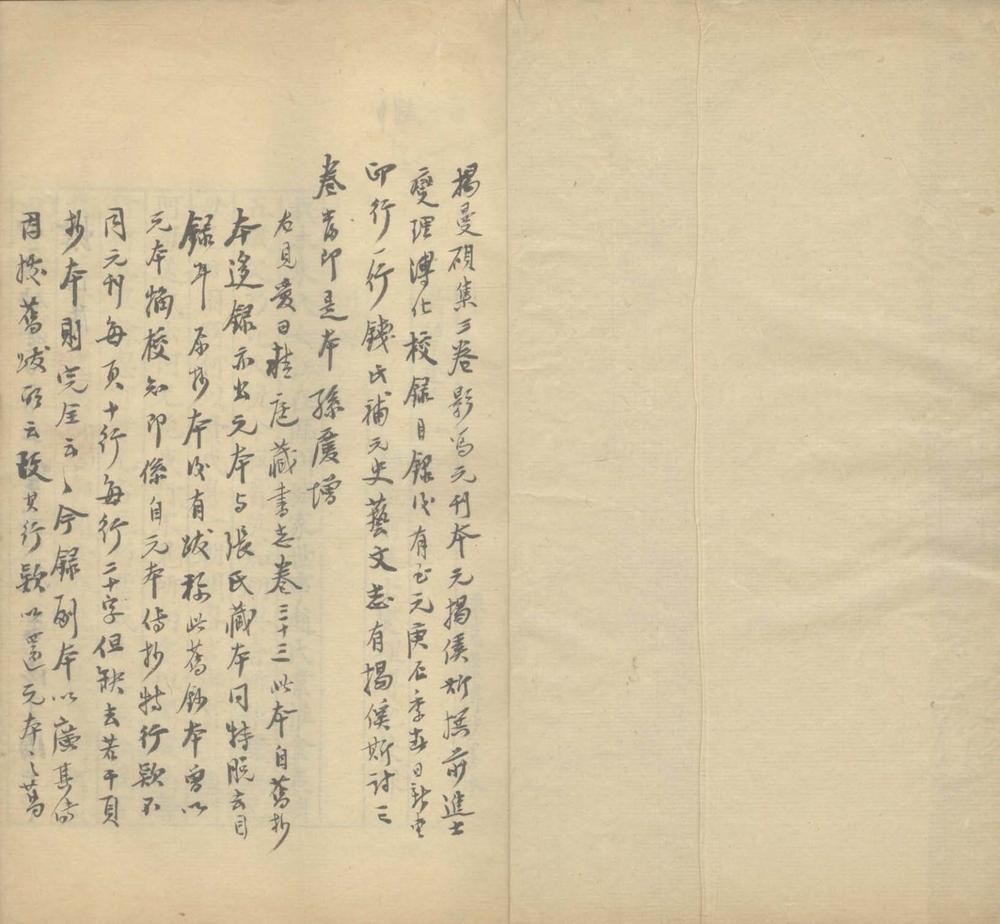 揭曼碩集三卷影寫元刊本元揭傒斯撰前進士
燮理溥化校錄目錄後有至元庚辰季春日新堂
印行一行錢氏補元史藝文志有揭傒斯詩三
卷當即是本 孫慶增
右見愛日精廬藏書志卷三十三此本自舊抄
本逐錄亦出元本与張氏藏本同特脫去目
錄耳原抄本後有跋稱此舊鈔本曾以
元本頫校知即係自元本傳抄特行款不
同元刊每頁十行每行二十字但缺去若干頁
抄本則完全云々今錄副本以廣其傳
因據舊跋所云改其行款以還元本之舊